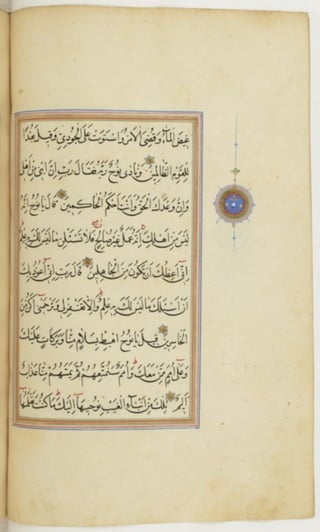 غيض الماء وقضى الامر واستوت على الجودي وقيل بعدا
للقوم الظالمين ونادى نوح ربه فقال رب ان ابني من اهلي
وان وعدك الحق وانت احكم الحاكمين قال يا نوح انه
ليس من اهلك انه عمل غير صالح فلا تسئلن ما ليس لك به علم
اني اعظك ان تكون من الجاهلين قال رب اني اعوذ بك
ان اسئلك ما ليس لي به علم والا تغفر لي وترحمني اكن من
الخاسرين قيل يا نوح اهبط بسلام منا وبركات عليك
وعلى امم ممن معك وامم سنمتعهم ثم يمسهم منا عذاب
اليم تلك من انباء الغيب نوحيها اليك ما كنت تعلمها